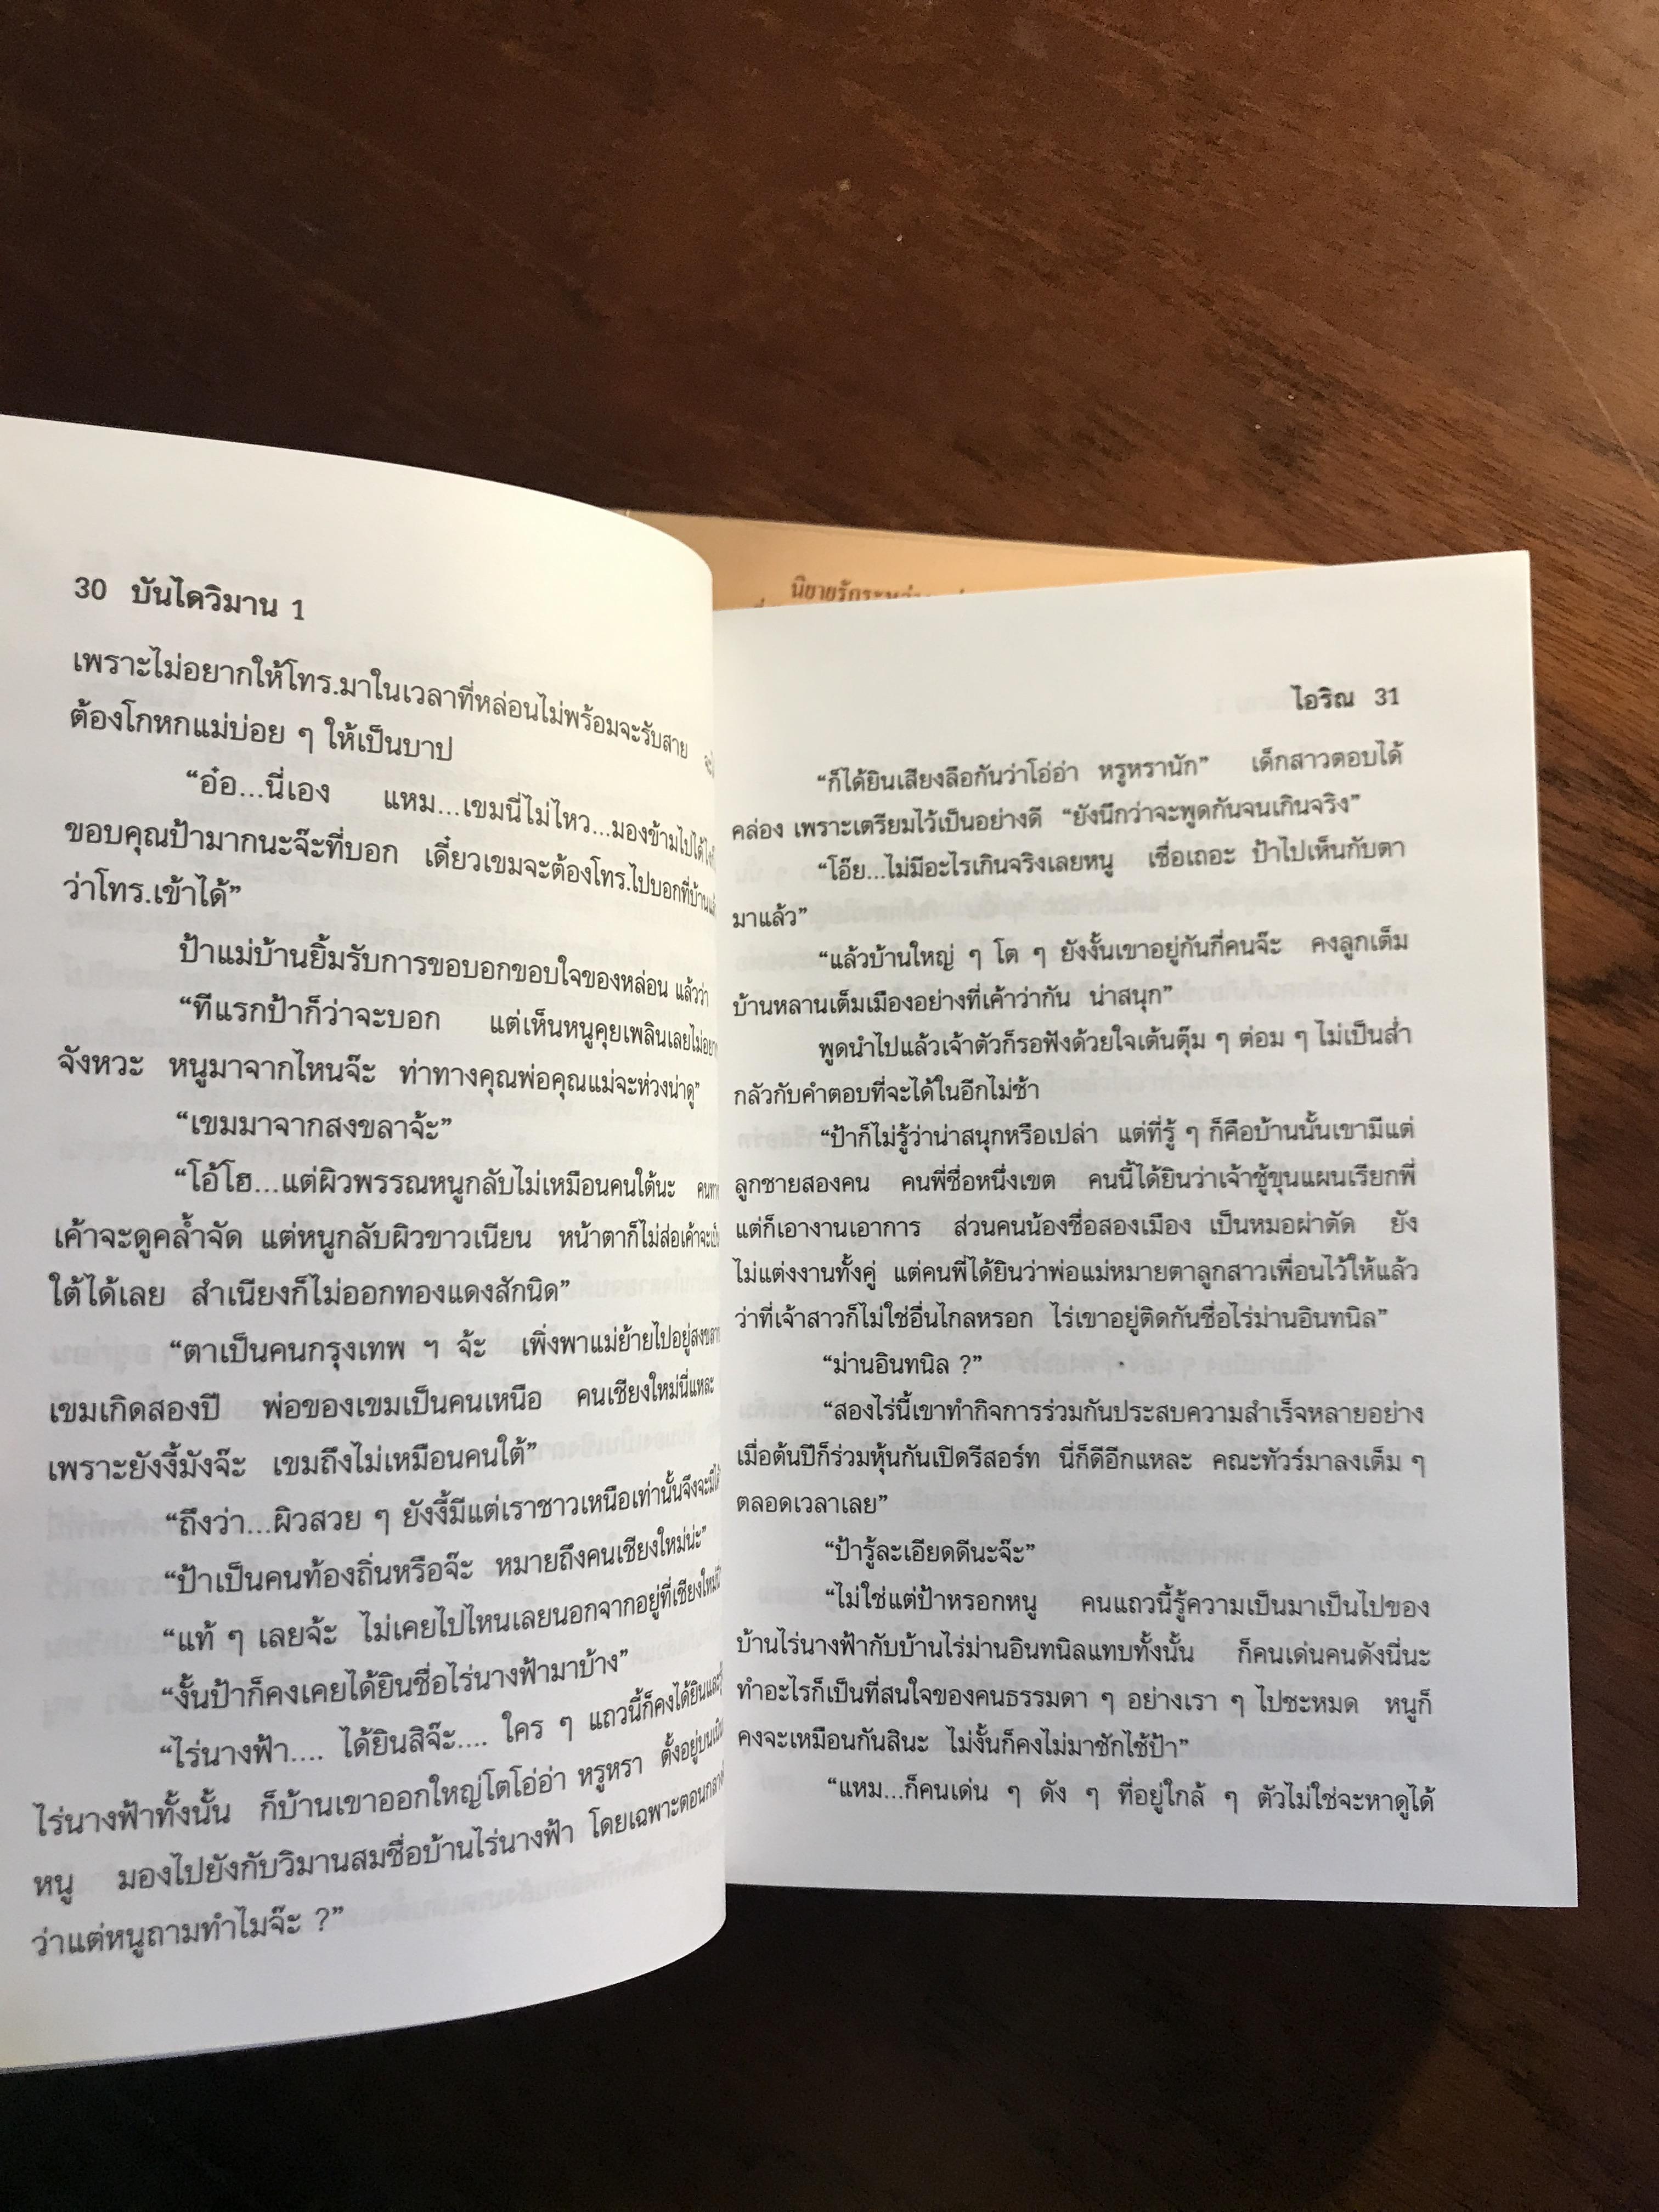 30 บันไดวิมาน 1
เพราะไม่อยากให้โทร.มาในเวลาที่หล่อนไม่พร้อมจะรับสาย
ต้องโกหกแม่บ่อย ๆ ให้เป็นบาป
“อ๋อ...นี่เอง แหม...เขมนี่ไม่ไหว...มองข้ามไปได้
ขอบคุณป้ามากนะจ๊ะที่บอก เดี๋ยวเขมจะต้องโทร.ไปบอกที่บ้าน
ว่าโทร.เข้าได้”
ป้าแม่บ้านยิ้มรับการขอบอกขอบใจของหล่อน แล้วว่า
“ทีแรกป้าก็ว่าจะบอก แต่เห็นหนูคุยเพลินเลยไม่อยาก
จังหวะ หนูมาจากไหนจ๊ะ ท่าทางคุณพ่อคุณแม่จะห่วงน่าดู”
“เขมมาจากสงขลาจ้ะ”
“โอ้โฮ...แต่ผิวพรรณหนูกลับไม่เหมือนคนใต้นะ
เค้าจะดูคล้ำจัด แต่หนูกลับผิวขาวเนียน หน้าตาก็ไม่ส่อเค้าจะเป็น
ใต้ได้เลย สำเนียงก็ไม่ออกทองแดงสักนิด”
“ตาเป็นคนกรุงเทพ ฯ จ้ะ เพิ่งพาแม่ย้ายไปอยู่สงขลา
เขมเกิดสองปี พ่อของเขมเป็นคนเหนือ คนเชียงใหม่นี่แหละ
เพราะยังงี้มังจ๊ะ เขมถึงไม่เหมือนคนใต้”
“ถึงว่า...ผิวสวย ๆ ยังงี้มีแต่เราชาวเหนือเท่านั้นจึงจะมีได้
“ป้าเป็นคนท้องถิ่นหรือจ๊ะ หมายถึงคนเชียงใหม่น่ะ”
“แท้ ๆ เลยจ้ะ ไม่เคยไปไหนเลยนอกจากอยู่ที่เชียงใหม่
“งั้นป้าก็คงเคยได้ยินชื่อไร่นางฟ้ามาบ้าง”
“ไร่นางฟ้า.... ได้ยินสิจ๊ะ.... ใคร ๆ แถวนี้ก็คงได้ยินและ
ไร่นางฟ้าทั้งนั้น ก็บ้านเขาออกใหญ่โตโอ่อ่า หรูหรา ตั้งอยู่บนเนิน
หนู มองไปยังกับวิมานสมชื่อบ้านไร่นางฟ้า โดยเฉพาะตอนกลาง
ว่าแต่หนูถามทำไมจ๊ะ ?”
นิยายรักระหว่าง
ไอริณ 31
“ก็ได้ยินเสียงลือกันว่าโอ่อ่า หรูหรานัก” เด็กสาวตอบได้
คล่อง เพราะเตรียมไว้เป็นอย่างดี “ยังนึกว่าจะพูดกันจนเกินจริง”
“โอ๊ย...ไม่มีอะไรเกินจริงเลยหนู เชื่อเถอะ ป้าไปเห็นกับตา
มาแล้ว”
“แล้วบ้านใหญ่ ๆ โต ๆ ยังงั้นเขาอยู่กันกี่คนจ๊ะ คงลูกเต็ม
บ้านหลานเต็มเมืองอย่างที่เค้าว่ากัน น่าสนุก”
พูดนำไปแล้วเจ้าตัวก็รอฟังด้วยใจเต้นตุ๊ม ๆ ต่อม ๆ ไม่เป็นส่ำ
กลัวกับคำตอบที่จะได้ในอีกไม่ช้า
“ป้าก็ไม่รู้ว่าน่าสนุกหรือเปล่า แต่ที่รู้ ๆ ก็คือบ้านนั้นเขามีแต่
ลูกชายสองคน คนพี่ชื่อหนึ่งเขต คนนี้ได้ยินว่าเจ้าชู้ขุนแผนเรียกพี่
แต่ก็เอางานเอาการ ส่วนคนน้องชื่อสองเมือง เป็นหมอผ่าตัด ยัง
ไม่แต่งงานทั้งคู่ แต่คนพี่ได้ยินว่าพ่อแม่หมายตาลูกสาวเพื่อนไว้ให้แล้ว
ว่าที่เจ้าสาวก็ไม่ใช่อื่นไกลหรอก ไร่เขาอยู่ติดกันชื่อไร่ม่านอินทนิล”
“ม่านอินทนิล ?”
“สองไร่นี้เขาทำกิจการร่วมกันประสบความสำเร็จหลายอย่าง
เมื่อต้นปีก็ร่วมหุ้นกันเปิดรีสอร์ท นี่ก็ดีอีกแหละ คณะทัวร์มาลงเต็ม ๆ
ตลอดเวลาเลย”
“ป้ารู้ละเอียดดีนะจ๊ะ”
“ไม่ใช่แต่ป้าหรอกหนู คนแถวนี้รู้ความเป็นมาเป็นไปของ
บ้านไร่นางฟ้ากับบ้านไร่ม่านอินทนิลแทบทั้งนั้น ก็คนเด่นคนดังนี่นะ
ทำอะไรก็เป็นที่สนใจของคนธรรมดา ๆ อย่างเรา ๆ ไปซะหมด หนูก็
คงจะเหมือนกันสินะ ไม่งั้นก็คงไม่มาซักไซ้ป้า”
“แหม...ก็คนเด่น ๆ ดัง ๆ ที่อยู่ใกล้ ๆ ตัวไม่ใช่จะหาดูได้